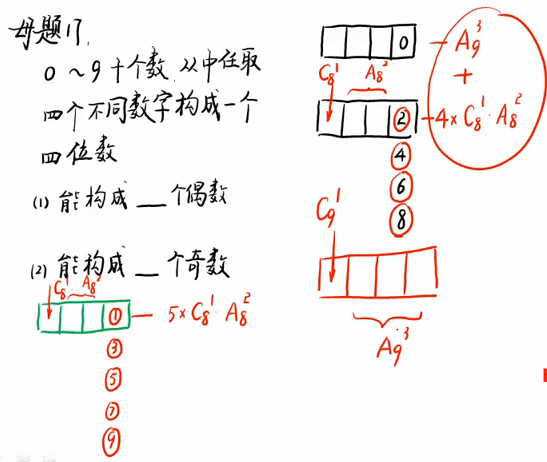 母题17.
0～9十个数.从中任取
四个不同数字构成一个
四位数
(1) 能构成__个偶数
(2) 能构成__个奇数
C₈¹ A₈²
① — 5×C₈¹·A₈²
③
⑤
⑦
⑨
0 — A₉³
+
C₈¹ A₈²
② — 4×C₈¹·A₈²
④
⑥
⑧
C₉¹
A₉³